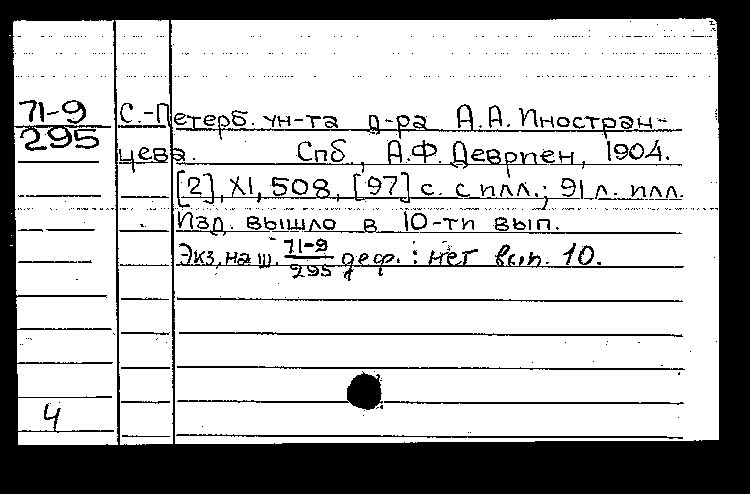 71-9
295
С.-Петерб. ун-та д-ра А.А. Иностран-
цева. Спб., А.Ф. Девриен, 1904.
[2], XI, 508, [97] с. с илл.; 91 л. илл.
Изд. вышло в 10-ти вып.
Экз. на ш. 71-9
295 деф.: нет вып. 10.
4